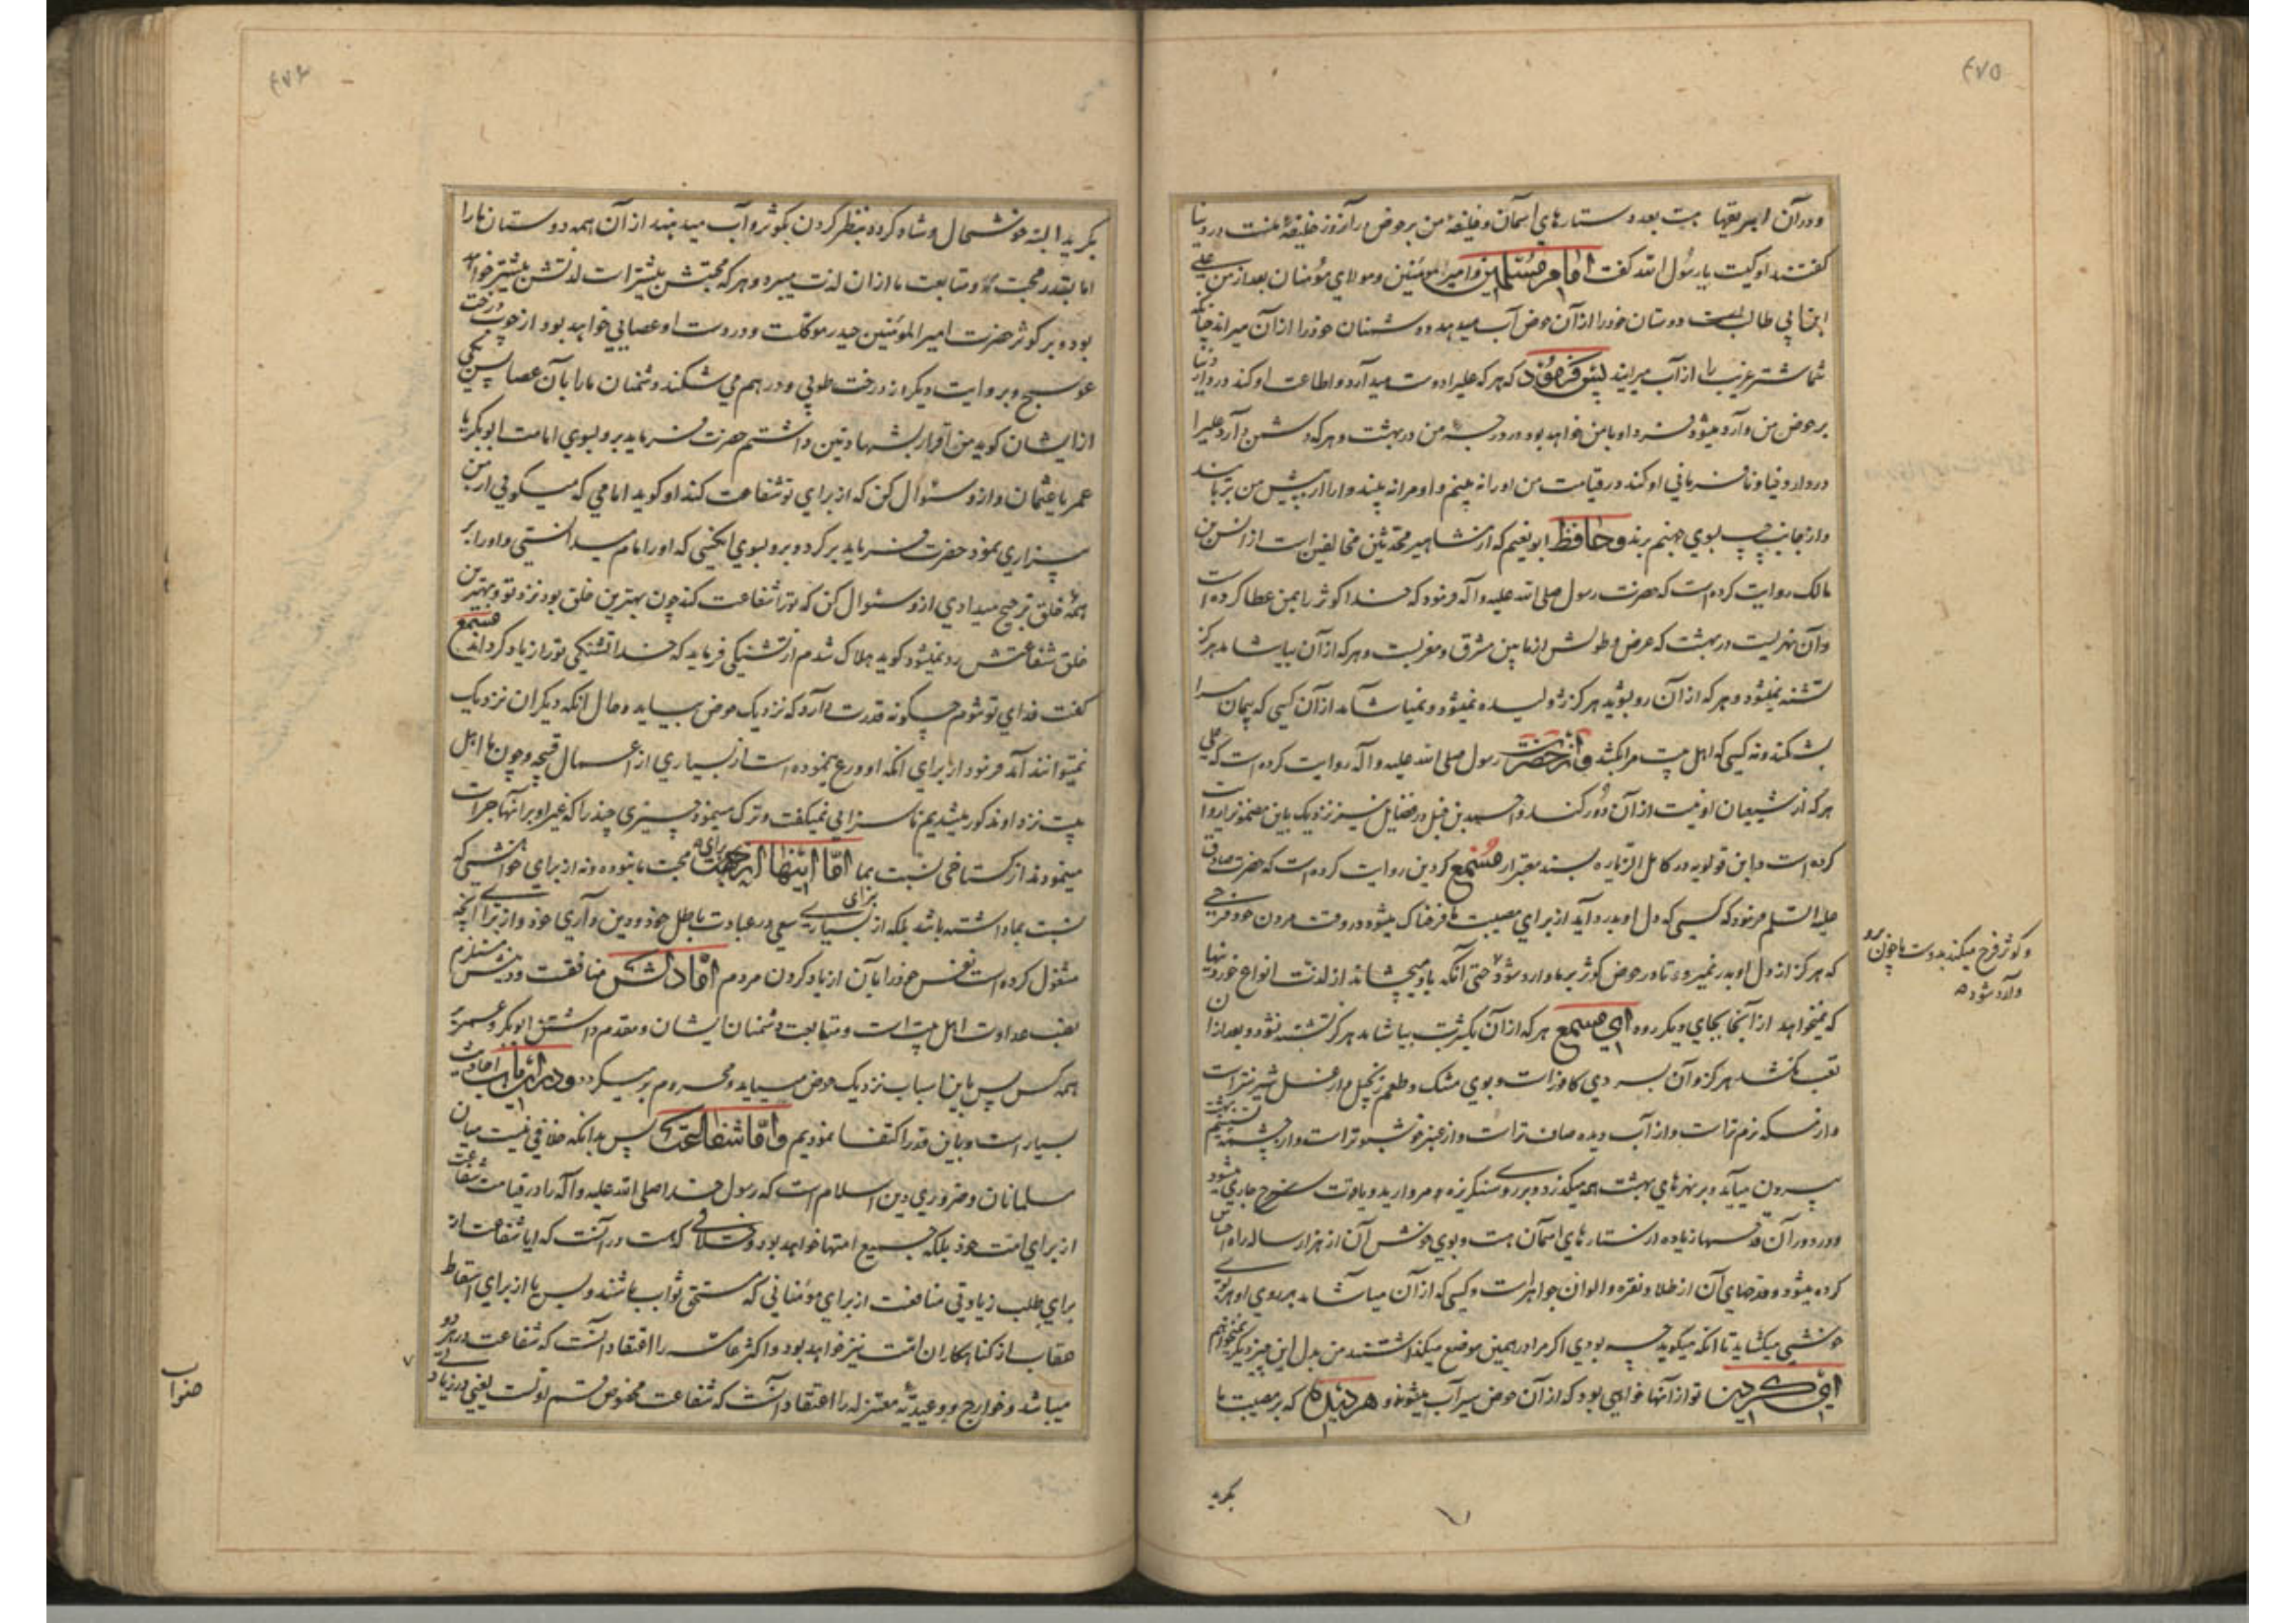 ٤٧٥
ودر آن ابریقها هست بعدد ستارهای آسمان وخلیفهٔ من بر حوض در آنروز خلیفهٔ منست در دنیا
گفتند او کیست یا رسول الله گفت امام مسلمین وامیر المومنین ومولای مؤمنان بعد از من علی
ابن ابی طالب است دوستان خود را از آن حوض آب میدهد ودشمنان خود را از آن میراند چنانکه
شما شتر غریب را از آب میرانید پس فرمود که هر که علیرا دوست میدارد واطاعت او کند در دار دنیا
بر حوض من وارد میشود فردا وبا من خواهد بود در درجهٔ من در بهشت وهر که دشمن دارد علیرا
در دار دنیا ونافرمانی او کند در قیامت من او را نه بینم واو مرا نه بیند واو را از پیش من بربایند
واز جانب چپ بسوی جهنم برند وحافظ ابو نعیم که از مشاهیر محدثین مخالفین است از انس بن
مالک روایت کرده است که حضرت رسول صلی الله علیه وآله فرمود که خدا کوثر را بمن عطا کرده است
وآن نهریست در بهشت که عرض وطولش از مابین مشرق ومغربست وهر که از آن بیاشامد هرگز
تشنه نمیشود وهر که از آن رو بشوید هرگز ژولیده نمیشود ونمیاشامد از آن کسی که پیمان مرا
بشکند ونه کسی که اهل بیت مرا بکشد واز حضرت رسول صلی الله علیه وآله روایت کرده است که علی
هر که از شیعیان او نیست از آن دور کند واحمد بن حنبل در فضایل نیز نزدیک باین مضمونرا روایت
کرده است وابن قولویه در کامل الزیاره بسند معتبر از مسمع کردین روایت کرده است که حضرت صادق
علیه السلم فرمود که کسی که دل او بدرد آید از برای مصیبت ما فرحناک میشود در وقت مردن خود فرحی
که هرگز از دل او بدر نمیرود تا در حوض کوثر بر ما وارد شود حتی آنکه باو میچشاند از لذت انواع خوردنیها
وکوثر فرح میکند بدوست ما چون برو
وارد شود
که نمیخواهد از آنجا بجای دیگر رود ای مسمع هر که از آن یکشربت بیاشامد هرگز تشنه نشود وبعد از آن
تعب نکشد هرگز وآن بسردی کافور است وببوی مشک وطعم زنجبیل واز عسل شیرینتر است
واز مسکه نرم تر است واز آب دیده صاف تر است واز عنبر خوشبوتر است واز چشمهٔ تسنیم بهشت
بیرون میآید وبر نهرهای بهشت همه میگذرد وبر روی سنگریزه مروارید ویاقوت سرخ جاری میشود
ودر دور آن قدحها زیاده از ستارهای آسمان هست وبوی خوش آن از هزار ساله راه احساس
کرده میشود وقدحهای آن از طلا ونقره والوان جواهر است وکسی که از آن میاشامد بر روی او هر بوی
خوشی میشاید تا آنکه میگوید چه بودی اگر مرا در همین موضع میگذاشتند من بدل این چیز دیگر نمیخواهم
ای کردین تو از آنها خواهی بود که از آن حوض سیرآب میشوند وهر دیدهٔ که بر مصیبت ما
بگرید
٤٧٦
بگرید البته خوشحال وشاد گردد بنظر کردن بکوثر وآب میدهند از آن همه دوستان ما را
اما بقدر محبت ما ومتابعت ما از آن لذت میبرد وهر که محبتش بیشتر است لذتش بیشتر خواهد
بود وبر کوثر حضرت امیر المومنین حیدر موکلست ودر دست او عصایی خواهد بود از چوب درخت
عوسج وبروایت دیگر از درخت طوبی ودر هم می شکند دشمنان ما را بآن عصا پس یکی
از ایشان گوید من اقرار بشهادتین داشتم حضرت فرماید برو بسوی امامت ابوبکر یا
عمر یا عثمان واز او سئوال کن که از برای تو شفاعت کند او گوید امامی که میگوئی از من
بیزاری نمود حضرت فرماید برگرد وبرو بسوی آنکسی که او را امام میدانستی واو را بر
همه خلق ترجیح میدادی از او سئوال کن که ترا شفاعت کند چون بهترین خلق بود نزد تو وبهترین
خلق شفاعتش رد نمیشود گوید هلاک شدم از تشنگی فرماید که خدا تشنگی تو را زیاد گرداند مسمع
گفت فدای تو شوم چگونه قدرت دارد که نزدیک حوض بیاید وحال آنکه دیگران نزدیک
نمیتوانند آمد فرمود از برای آنکه او ورع نموده است از بسیاری از اعمال قبیحه وچون ما اهل
بیت نزد او مذکور میشدیم ناسزایی نمیگفت وترک مینمود چیزی چند را که غیر او بر آنها جرات
مینمودند از گستاخی نسبت بما اما اینها از جهت برای محبت ما نبوده ونه از برای خواهشی که
نسبت بما داشته باشد بلکه از برای بسیاری سعی در عبادت باطل خود ودین داری خود واز برای آنچه
مشغول کرده است نفس خود را بآن از یاد کردن مردم اما دلش منافقست ودینش مستلزم
نصب عداوت اهل بیت است ومتابعت دشمنان ایشان ومقدم داشتن ابوبکر وعمر بر
همه کس پس باین اسباب نزدیک حوض میباید ومحروم بر میگردد ودر این باب احادیث
بسیار است وباین قدر اکتفا نمودیم واما شفاعت پس بدانکه خلافی نیست میان
مسلمانان وضروری دین اسلام است که رسول خدا صلی الله علیه وآله را در قیامت شفاعت
از برای امت خود بلکه جمیع امتها خواهد بود وخلافی که هست در آنست که آیا شفاعت از
برای طلب زیادتی منافعست از برای مؤمنانی که مستحق ثواب باشند وبس یا از برای اسقاط
عقاب از گناهکاران امت نیز خواهد بود واکثر عامه را اعتقاد آنست که شفاعت در هر دو
میباشد وخوارج ووعیدیه معتزله را اعتقاد آنست که شفاعت مخصوص قسم اولست یعنی در زیادتی
صواب